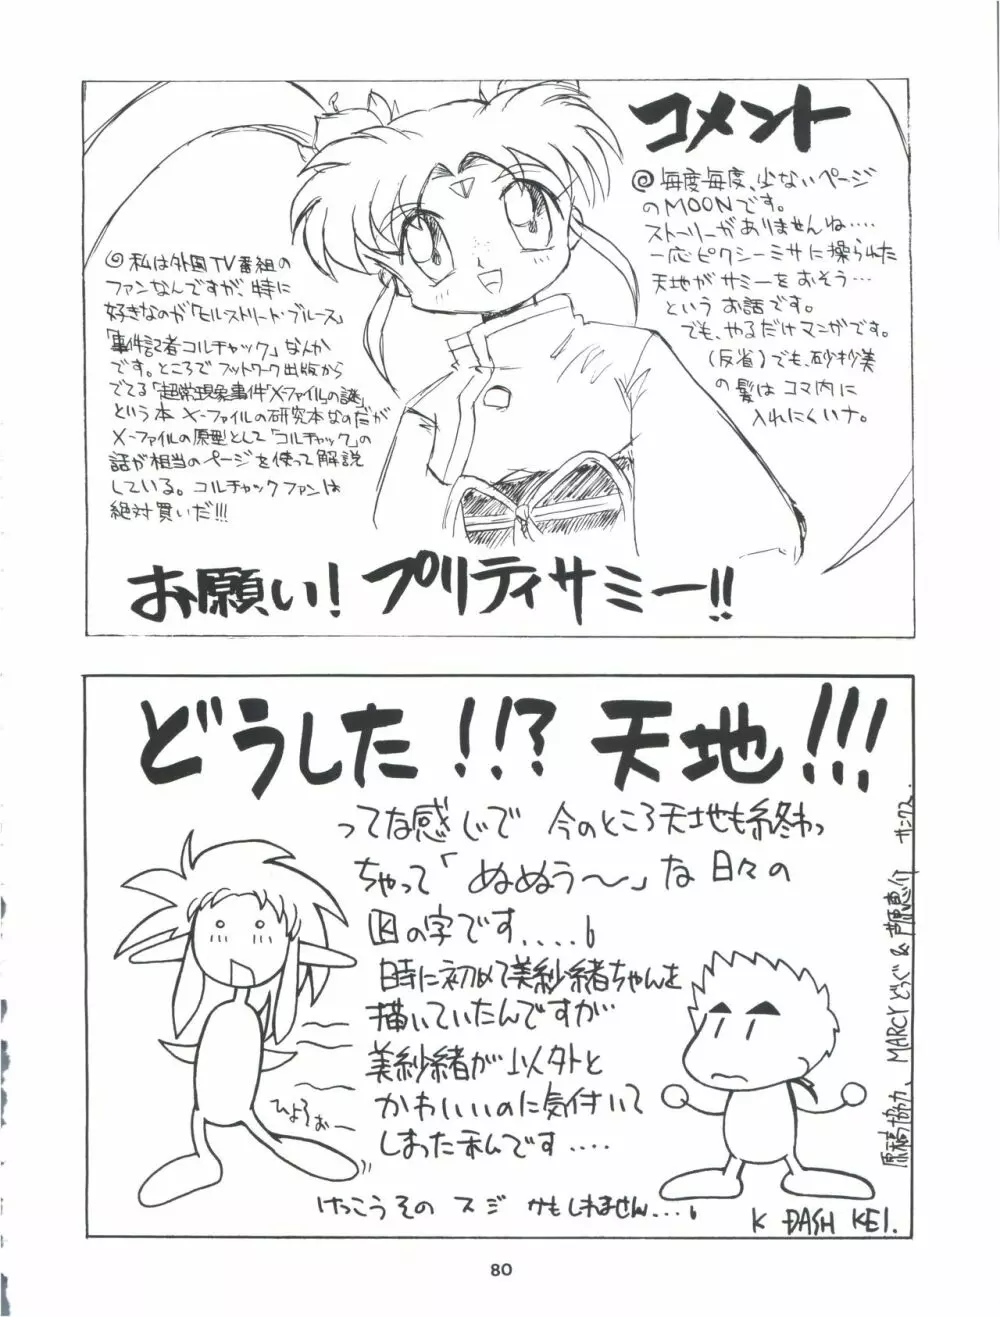 コメント
◎毎度毎度、少ないページ
のMOONです。
ストーリーがありませんね‥‥
一応ピクシーミサに操られた
天地がサミーをおそう‥‥
というお話です。
でも、やるだけマンガです。
(反省)でも、砂沙美
の髪はコマ内に
入れにくいナ。
◎私は外国TV番組の
ファンなんですが、特に
好きなのが「ヒルストリート・ブルース」
「事件記者コルチャック」なんか
です。ところでフットワーク出版から
でてる「超常現象事件「X-ファイル」の謎」
という本 X-ファイルの研究本なのだが
X-ファイルの原型として「コルチャック」の
話が相当のページを使って解説
している。コルチャックファンは
絶対買いだ!!!
お願い!プリティサミー!!
どうした!!?天地!!!
ってな感じで 今のところ天地も終わっ
ちゃって「ぬぬぅ〜」な日々の
図の字です.....。
同時に初めて美紗緒ちゃんを
描いていたんですが
美紗緒が以外と
かわいいのに気付いて
しまった私んです‥‥
けっこうその スジ かもしれません...。
ひょろぉー
原稿協力、MARCYどっぐ&芦原恵介 サンクス.
K DASH KEI.
80